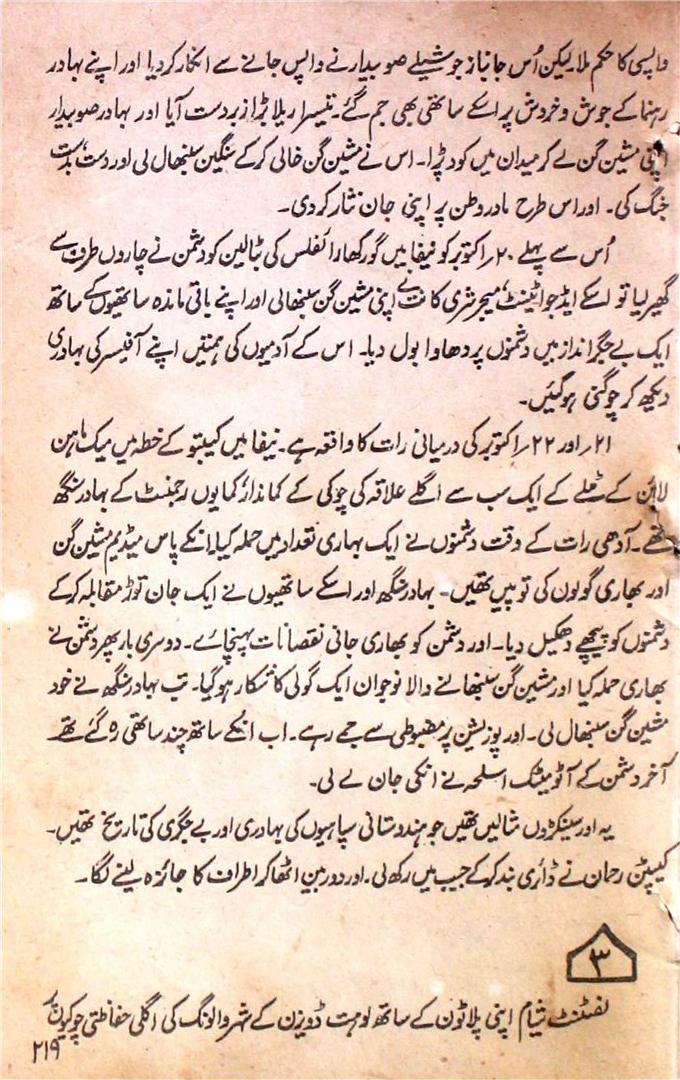 واپسی کا حکم ملا لیکن اُس جانباز جوشیلے صوبیدار نے واپس جانے سے انکار کر دیا اور اپنے بہادر
رہنما کے جوش و خروش پر اسکے ساتھی بھی جم گئے۔ تیسرا ریلا بڑا زبردست آیا اور بہادر صوبیدار
اپنی مشین گن لے کر میدان میں کود پڑا۔ اس نے مشین گن خالی کر کے سنگین سنبھال لی اور دست بدست
جنگ کی۔ اور اس طرح مادرِ وطن پر اپنی جان نثار کر دی۔
اُس سے پہلے ۲۰ر اکتوبر کو نیفا میں گورکھا رائفلس کی بٹالین کو دشمن نے چاروں طرف سے
گھیر لیا تو اسکے ایڈجوائینٹ میجر شری کانت نے اپنی مشین گن سنبھالی اور اپنے باقی ماندہ ساتھیوں کے ساتھ
ایک بے جگر انداز میں دشمنوں پر دھاوا بول دیا۔ اس کے آدمیوں کی ہمتیں اپنے آفیسر کی بہادری
دیکھ کر چوگنی ہو گئیں۔
۲۱ر اور ۲۲ر اکتوبر کی درمیانی رات کا واقعہ ہے۔ نیفا میں کیبتو کے خطہ میں میک ماہن
لائن کے ٹھلے کے ایک سب سے اگلے علاقہ کی چوکی کے کماندار کمایوں رجمنٹ کے بہادر سنگھ
تھے۔ آدھی رات کے وقت دشمنوں نے ایک بھاری تعداد میں حملہ کیا۔ انکے پاس میڈیم مشین گن
اور بھاری گولوں کی توپیں تھیں۔ بہادر سنگھ اور اسکے ساتھیوں نے ایک جان توڑ مقابلہ کر کے
دشمنوں کو پیچھے دھکیل دیا۔ اور دشمن کو بھاری جانی نقصانات پہنچائے۔ دوسری بار پھر دشمن نے
بھاری حملہ کیا اور مشین گن سنبھالنے والا نوجوان ایک گولی کا شکار ہو گیا۔ تب بہادر سنگھ نے خود
مشین گن سنبھال لی۔ اور پوزیشن پر مضبوطی سے جمے رہے۔ اب انکے ساتھ چند ساتھی رہ گئے تھے
آخر دشمن کے آٹومیٹک اسلحہ نے انکی جان لے لی۔
یہ اور سینکڑوں مثالیں تھیں جو ہندوستانی سپاہیوں کی بہادری اور بے جگری کی تاریخ تھیں۔
کیپٹن رحمان نے ڈائری بند کر کے جیب میں رکھ لی۔ اور دوربین اٹھا کر اطراف کا جائزہ لینے لگا۔
۳
لفٹننٹ شیام اپنی پلاٹون کے ساتھ لوہت ڈویزن کے شہر والونگ کی اگلی حفاظتی چوکیوں
۲۱۹